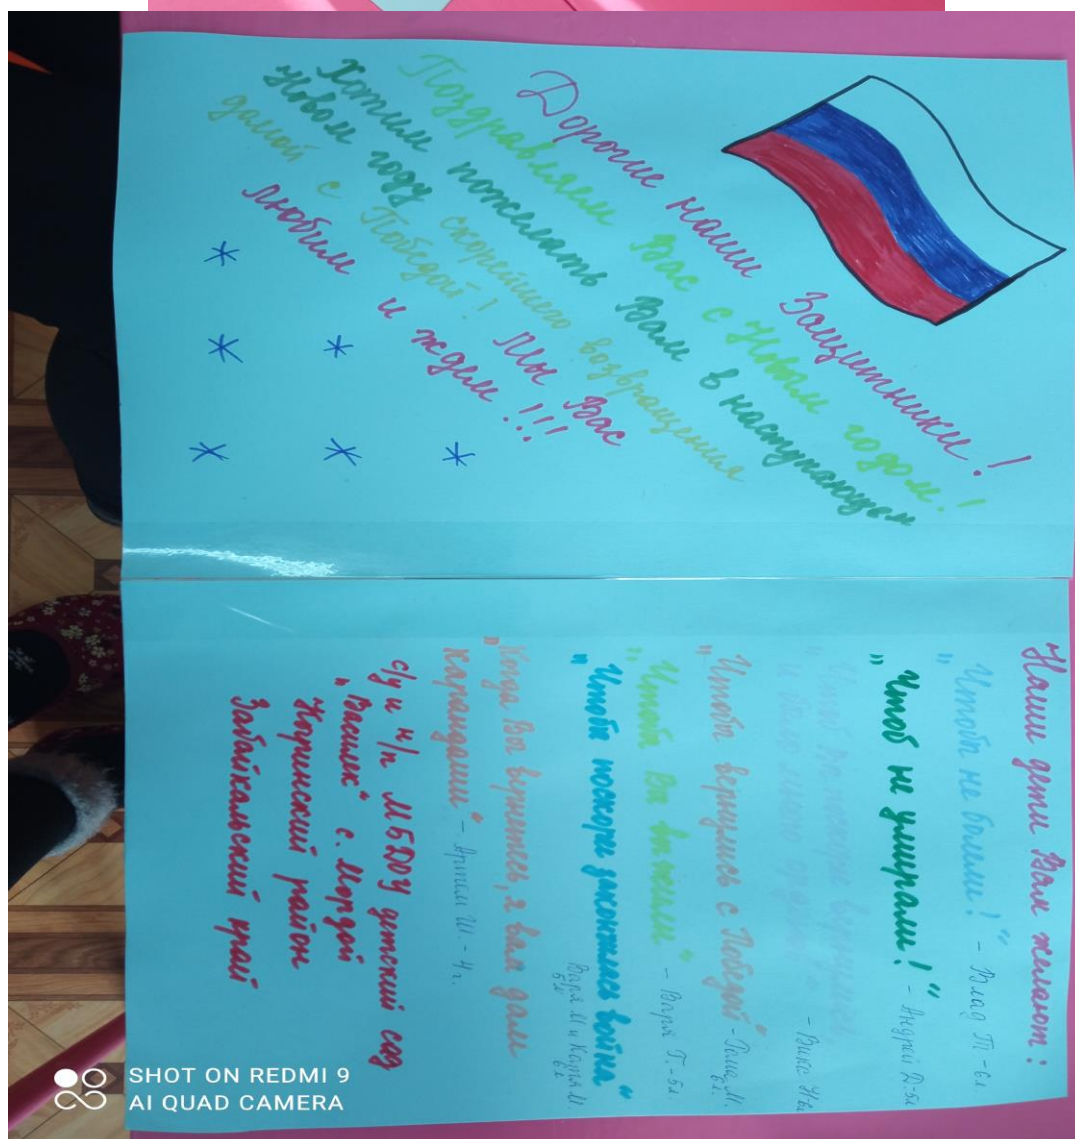 Дорогие наши Защитники!
Поздравляем Вас с Новым годом!
Хотим пожелать Вам в наступающем
Новом году скорейшего возвращения
домой с Победой! Мы Вас
любим и ждем!!!
Наши дети Вам желают:
"Чтобы не болели!" - Влад Т-6л
"Чтоб не умирали!" - Андрей Д-5л
и было много - Вика
"Чтобы вернулись с Победой" - М. 6л.
"Чтоб Вы выжили" - Варя Т.-5л.
"Чтобы поскорее закончилась война"
Варя М и Катя М.
6л 6л
"Когда Вы вернетесь, я вам дам
карандаши" - Артем Ш - 4г.
с/у и н/п МБДОУ детский сад
"Василек" с. Мордой
Коринский район
Забайкальский край
SHOT ON REDMI 9
AI QUAD CAMERA